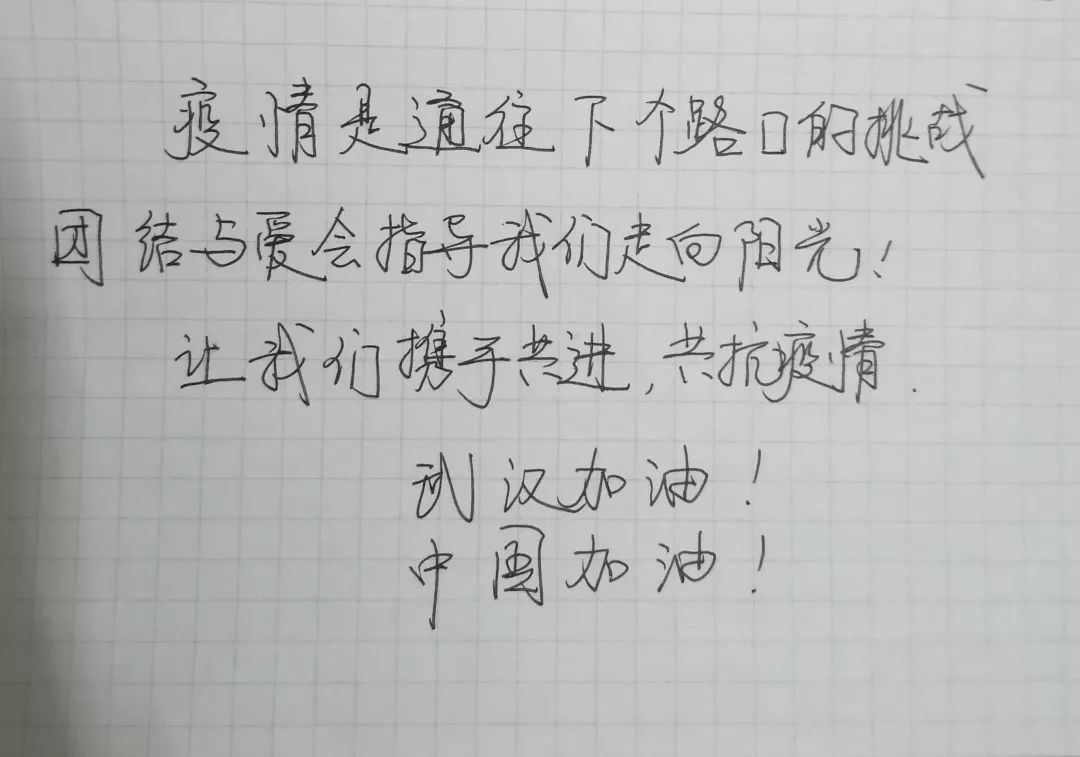 疫情是通往下个路口的挑战
团结与爱会指导我们走向阳光！
让我们携手共进，共抗疫情.
武汉加油！
中国加油！